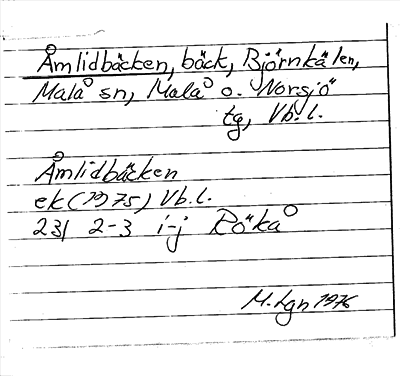 Åmlidbäcken, bäck, Björnkälen,
Malå sn, Malå o. Norsjö
tg, Vb.l.
Åmlidbäcken
ek (1975) Vb.l.
23I 2-3 i-j Rökå
M. Lgn 1976